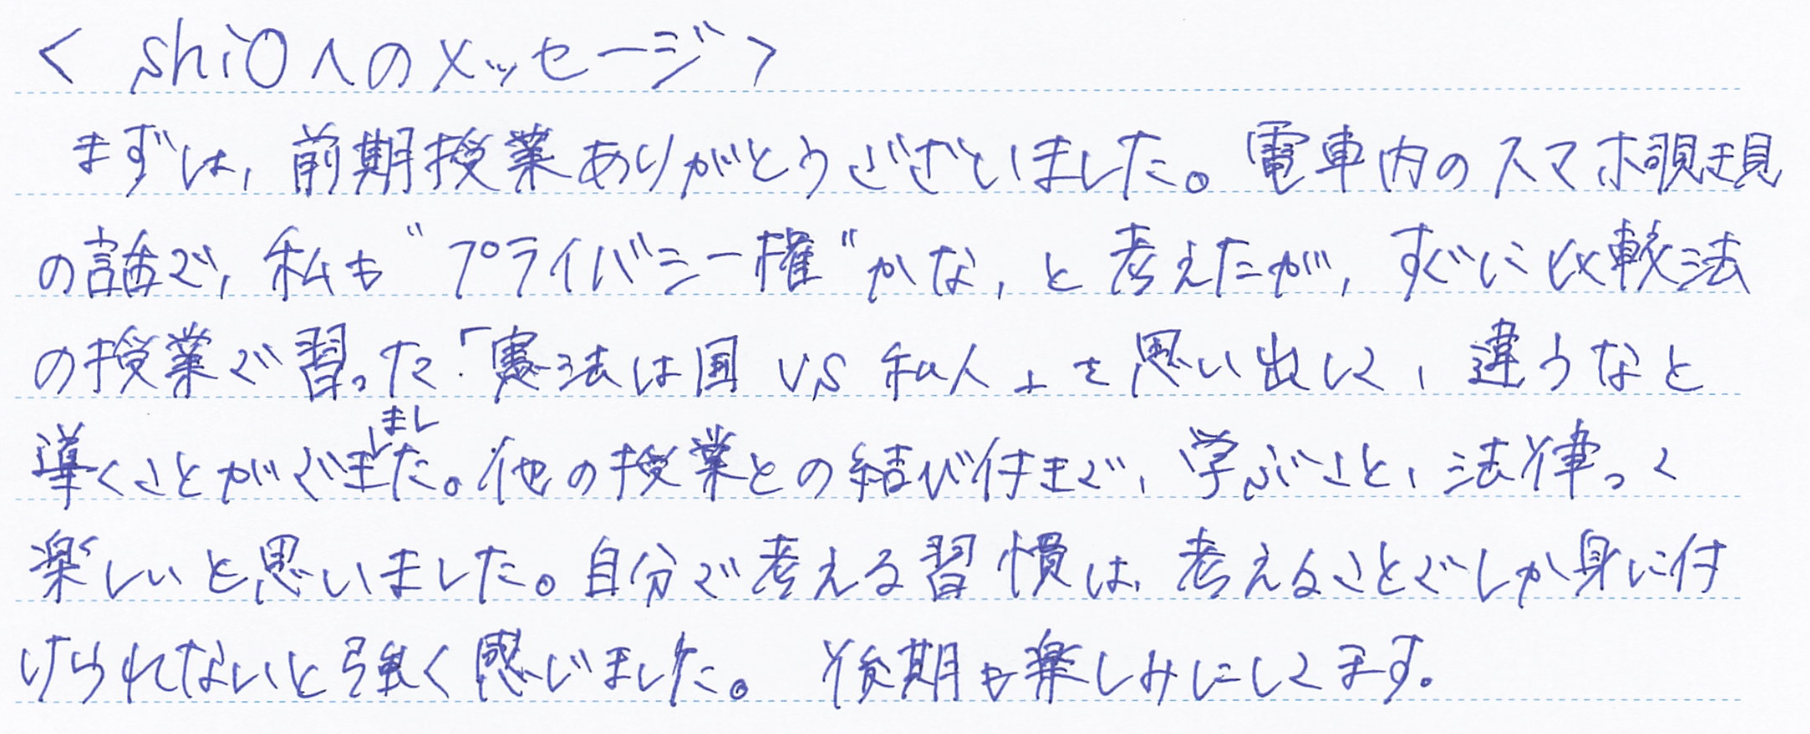 < shiOへのメッセージ>
まずは、前期授業ありがとうございました。電車内のスマホ覗き見
の話で、私も"プライバシー権"かな、と考えたが、すぐに比較法
の授業で習った「憲法は国 vs 私人」を思い出して、違うなと
導くことができました。他の授業との結び付きで、学ぶこと、法律って
楽しいと思いました。自分で考える習慣は、考えることでしか身に付
けられないと強く感じました。 後期も楽しみにしてます。